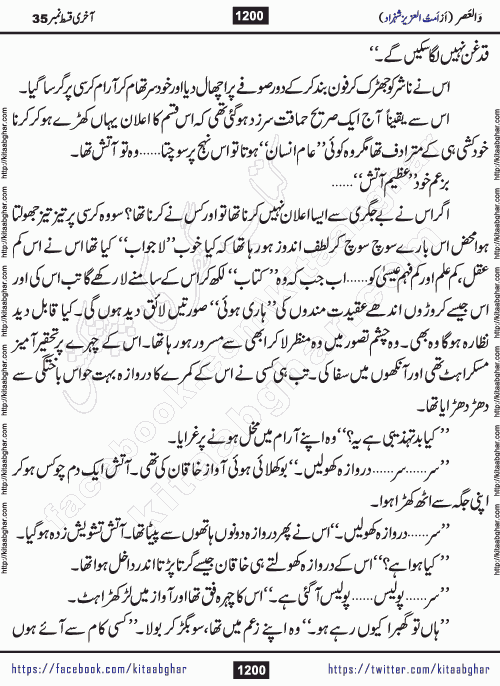 والعصر (از امت العزیز شہزاد)
1200
آخری قسط نمبر 35
قدغن نہیں لگا سکیں گے۔‘‘
اس نے ناشر کو جھڑک کر فون بند کر کے دور صوفے پر اچھال دیا اور خود سر تھام کر آرام کرسی پر گر سا گیا۔
اس سے یقیناً آج ایک صریح حماقت سرزد ہو گئی تھی کہ اس قسم کا اعلان یہاں کھڑے ہو کر کرنا
خودکشی ہی کے مترادف تھا مگر وہ کوئی ’’عام انسان‘‘ ہوتا تو اس نہج پر سوچتا......وہ تو آتش تھا۔
بزعم خود ’’عظیم آتش‘‘......
اگر اس نے بے جگری سے ایسا اعلان نہیں کرنا تھا تو اور کس نے کرنا تھا؟ سو وہ کرسی پر تیز تیز جھولتا
ہوا محض اس بارے سوچ سوچ کر لطف اندوز ہو رہا تھا کہ کیا خوب ’’لاجواب‘‘ کیا تھا اس نے اس کم
عقل، کم علم اور کم فہم عیسیٰ کو......اب جب کہ وہ ’’کتاب‘‘ لکھ کر اس کے سامنے لا رکھے گا تب اس کی اور
اس جیسے کروڑوں اندھے عقیدت مندوں کی ’’ہاری ہوئی‘‘ صورتیں لائق دید ہوں گی۔ کیا قابل دید
نظارہ ہو گا وہ بھی۔ وہ چشم تصور میں وہ منظر لا کر ابھی سے مسرور ہو رہا تھا۔ اس کے چہرے پر تحقیر آمیز
مسکراہٹ تھی اور آنکھوں میں سفاکی۔ تب ہی کسی نے اس کے کمرے کا دروازہ بہت حواس باختگی سے
دھڑ دھڑایا تھا۔
’’کیا بدتہذیبی ہے یہ؟‘‘ وہ اپنے آرام میں مخل ہونے پر غرایا۔
’’سر......سر......دروازہ کھولیں۔‘‘ بوکھلائی ہوئی آواز خاقان کی تھی۔ آتش ایک دم چوکس ہو کر
اپنی جگہ سے اٹھ کھڑا ہوا۔
’’سر......دروازہ کھولیں۔‘‘ اس نے پھر دروازہ دونوں ہاتھوں سے پیٹا تھا۔ آتش تشویش زدہ ہو گیا۔
’’کیا ہوا ہے؟‘‘ اس کے دروازہ کھولتے ہی خاقان جیسے گرتا پڑتا اندر داخل ہوا تھا۔
’’سر......پولیس......پولیس آ گئی ہے۔‘‘ اس کا چہرہ فق تھا اور آواز میں لڑکھڑاہٹ۔
’’ہاں تو گھبرا کیوں رہے ہو۔‘‘ وہ اپنے زعم میں تھا، سو بگڑ کر بولا۔ ’’کسی کام سے آئے ہوں
https://facebook.com/kitaabghar
1200
https://twitter.com/kitaabghar
http://kitaabghar.com